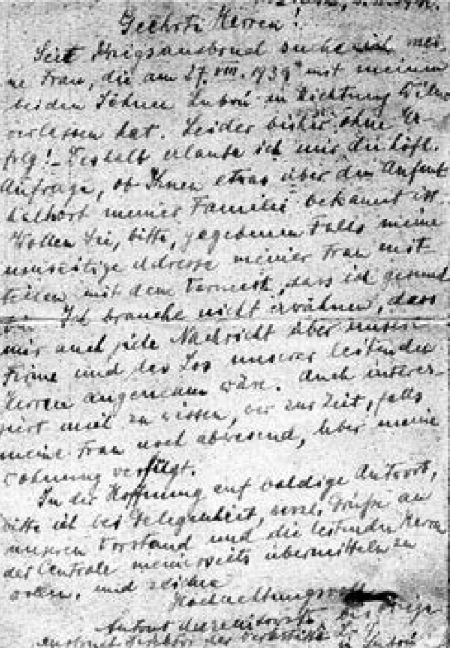 Geehrte Herren!
Seit Kriegsausbruch suche ich mei-
ne Frau, die am 27.VIII.1939 mit meinen
beiden Söhnen Luboń in Richtung Wilno
verlassen hat. Leider bisher ohne Er-
folg! Deshalb erlaube ich mir die höfl.
Anfrage, ob Ihnen etwas über den Aufent
haltsort meiner Familie bekannt ist.
Wollen Sie, bitte, gegebenen Falls meine
umseitige Adresse meiner Frau mit
teilen mit dem Vermerk, dass ich gesund
bin. Ich brauche nicht erwähnen, dass
mir auch jede Nachricht über unsere
Firma und das Los unserer leitenden
Herren angenehm wäre. Auch interes-
siert mich zu wissen, wer zur Zeit, falls
meine Frau noch abwesend, über meine
Wohnung verfügt.
In der Hoffnung auf baldige Antwort,
bitte ich bei Gelegenheit, Grüße an
unseren Vorstand und die leitenden Herren
der Centrale meinerseits übermitteln zu
wollen, und zeichne
Hochachtungsvoll
in Luboń